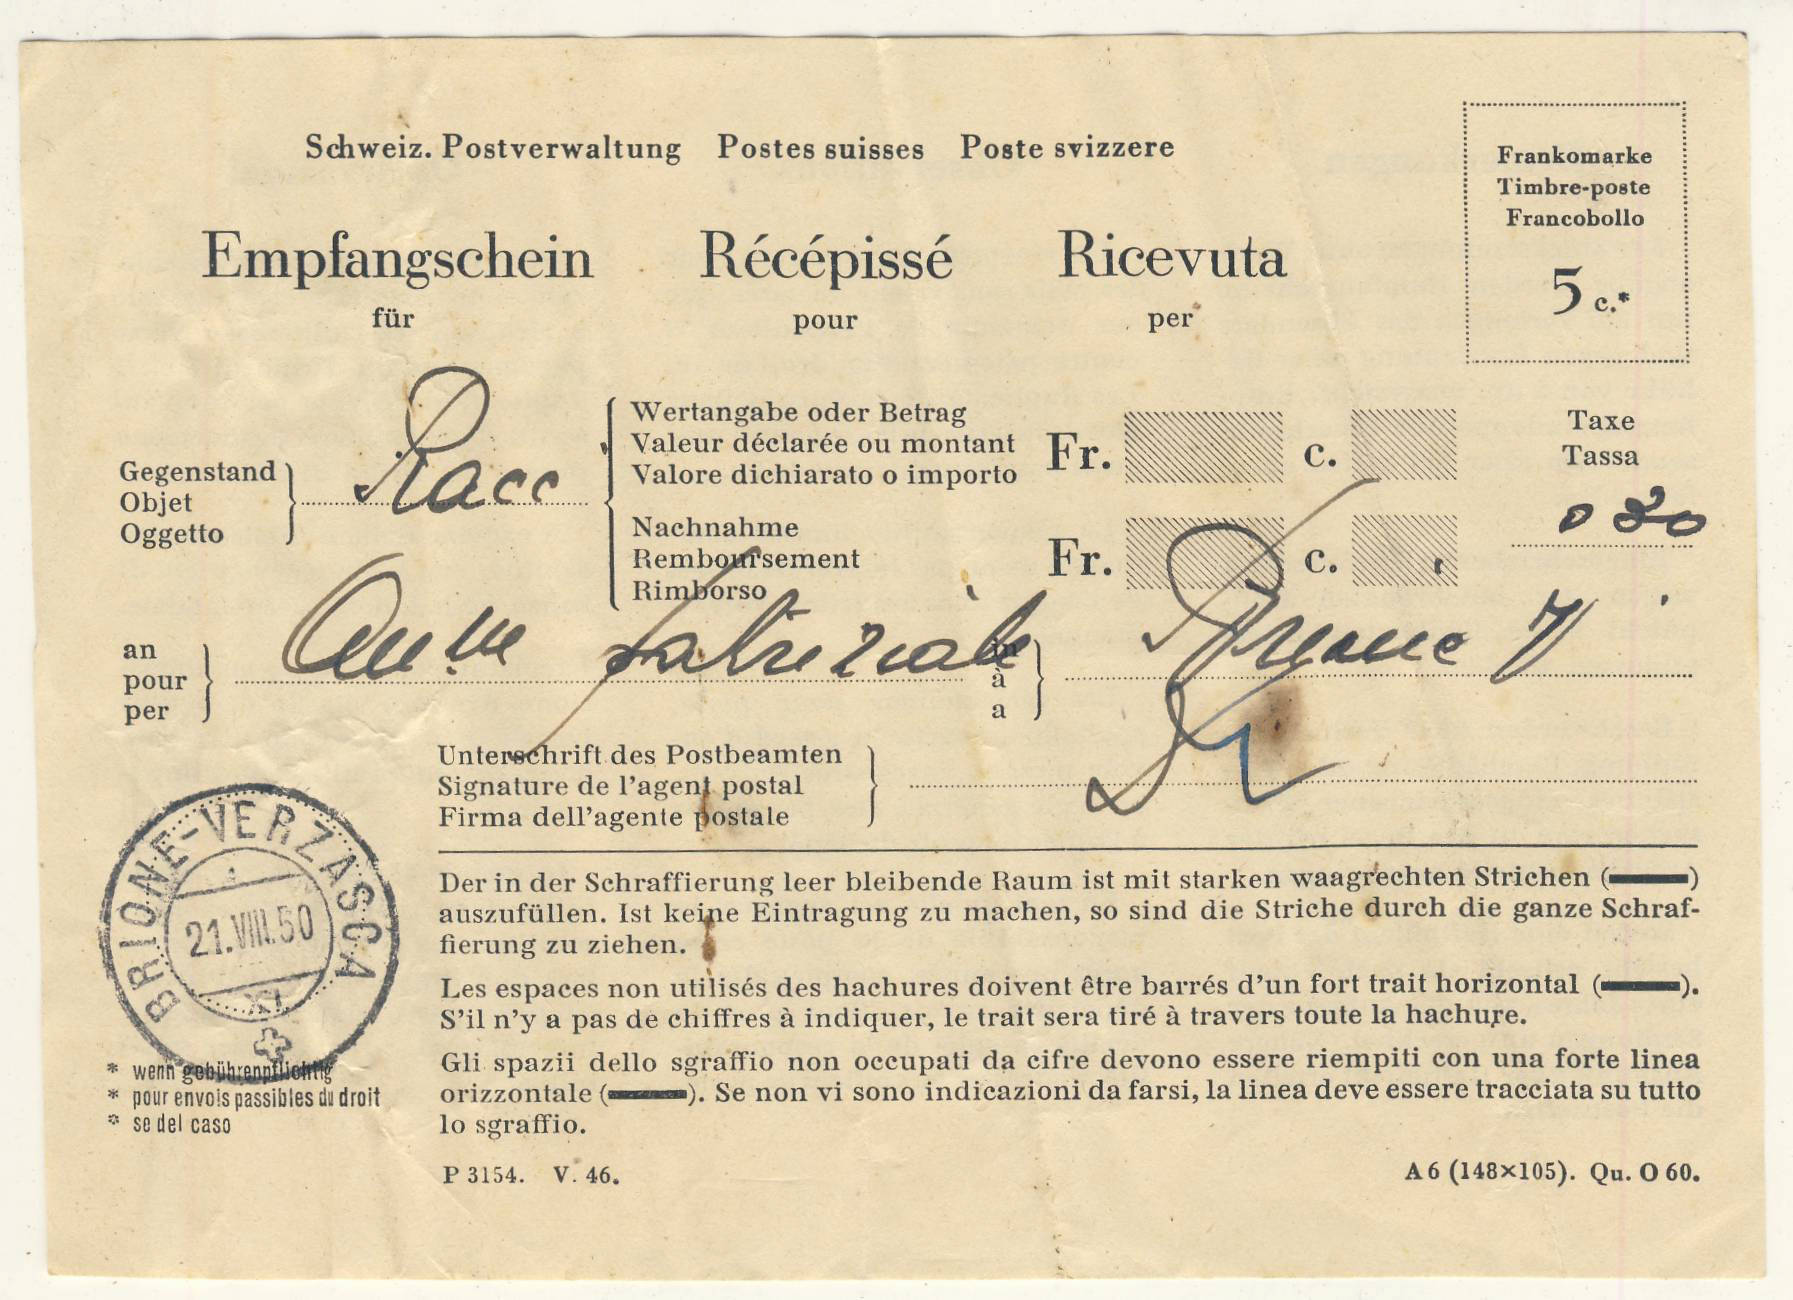 Schweiz. Postverwaltung Postes suisses Poste svizzere
Frankomarke
Timbre-poste
Francobollo
5 c.*
Empfangschein Récépissé Ricevuta
für pour per
Gegenstand
Objet
Oggetto
Racc
Wertangabe oder Betrag
Valeur déclarée ou montant
Valore dichiarato o importo
Fr. c.
Taxe
Tassa
Nachnahme
Remboursement
Rimborso
Fr. c.
0 30
an
pour
per
in
à
a
Unterschrift des Postbeamten
Signature de l'agent postal
Firma dell'agente postale
BRIONE-VERZASCA
21.VIII.50
XI
Der in der Schraffierung leer bleibende Raum ist mit starken waagrechten Strichen (▬)
auszufüllen. Ist keine Eintragung zu machen, so sind die Striche durch die ganze Schraf-
fierung zu ziehen.
Les espaces non utilisés des hachures doivent être barrés d'un fort trait horizontal (▬).
S'il n'y a pas de chiffres à indiquer, le trait sera tiré à travers toute la hachure.
Gli spazii dello sgraffio non occupati da cifre devono essere riempiti con una forte linea
orizzontale (▬). Se non vi sono indicazioni da farsi, la linea deve essere tracciata su tutto
lo sgraffio.
* wenn gebührenpflichtig
* pour envois passibles du droit
* se del caso
P 3154. V. 46.
A 6 (148×105). Qu. O 60.